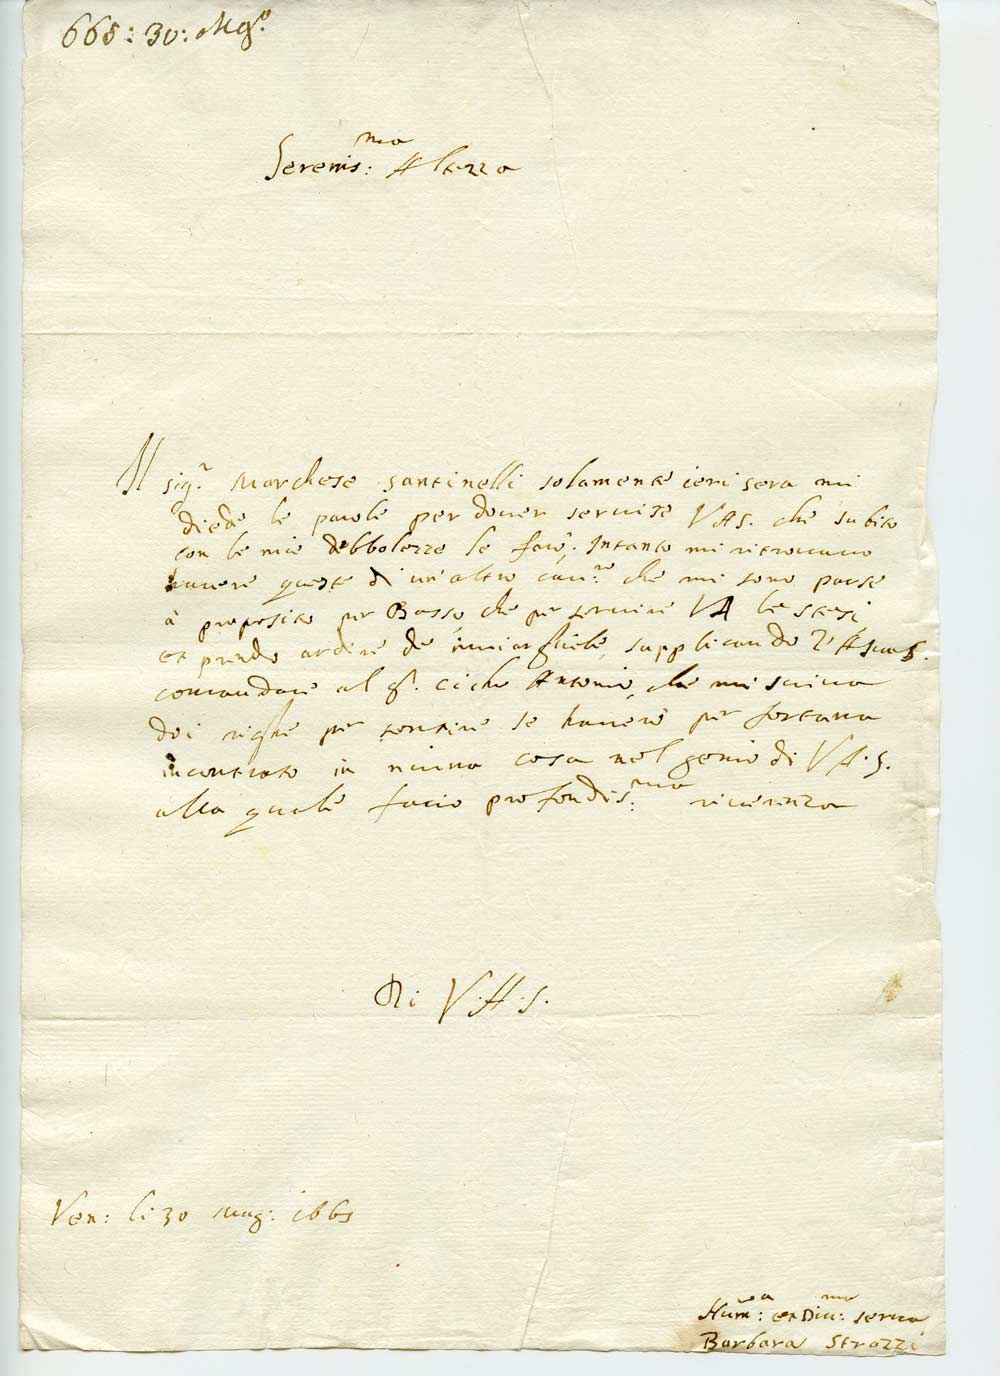 665: 30: Mgo.
Serenis:ma Altezza
Il sigr. Marchese Santinelli solamente ieri sera mi
diede le parole per dover servire VAS. che subito
con le mie debbolezze le farò; Intanto mi ritrovavo
havere queste di un'altro che mi sono parse
à proposito per Basso, che per servire VA le
et prendo ardire de inviargliele, supplicando l'A sua S.
comandare al Sr. Cicho Antonio, che mi scriva
doi righe per sentire se haverò per fortuna
incontrato in niuna cosa nel genio di V.A.S.
alla quale facio profondis:ma riverenza
Di V.A.S.
Ven: li 30 Mag: 1665
Hum:a et Div:ma serva
Barbara Strozzi